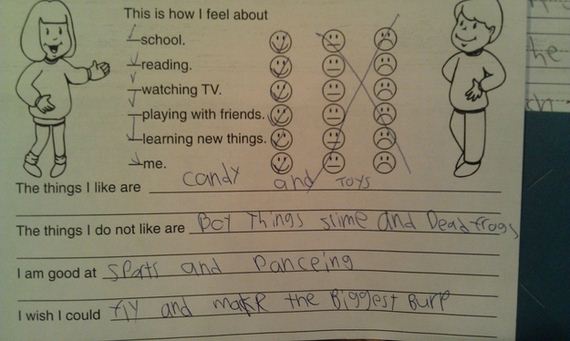 This is how I feel about
school.
reading.
watching TV.
playing with friends.
learning new things.
me.
The things I like are candy and toys
The things I do not like are Boy Things slime and Dead frogs
I am good at sports and Danceing
I wish I could fly and make the Biggest Burp
he